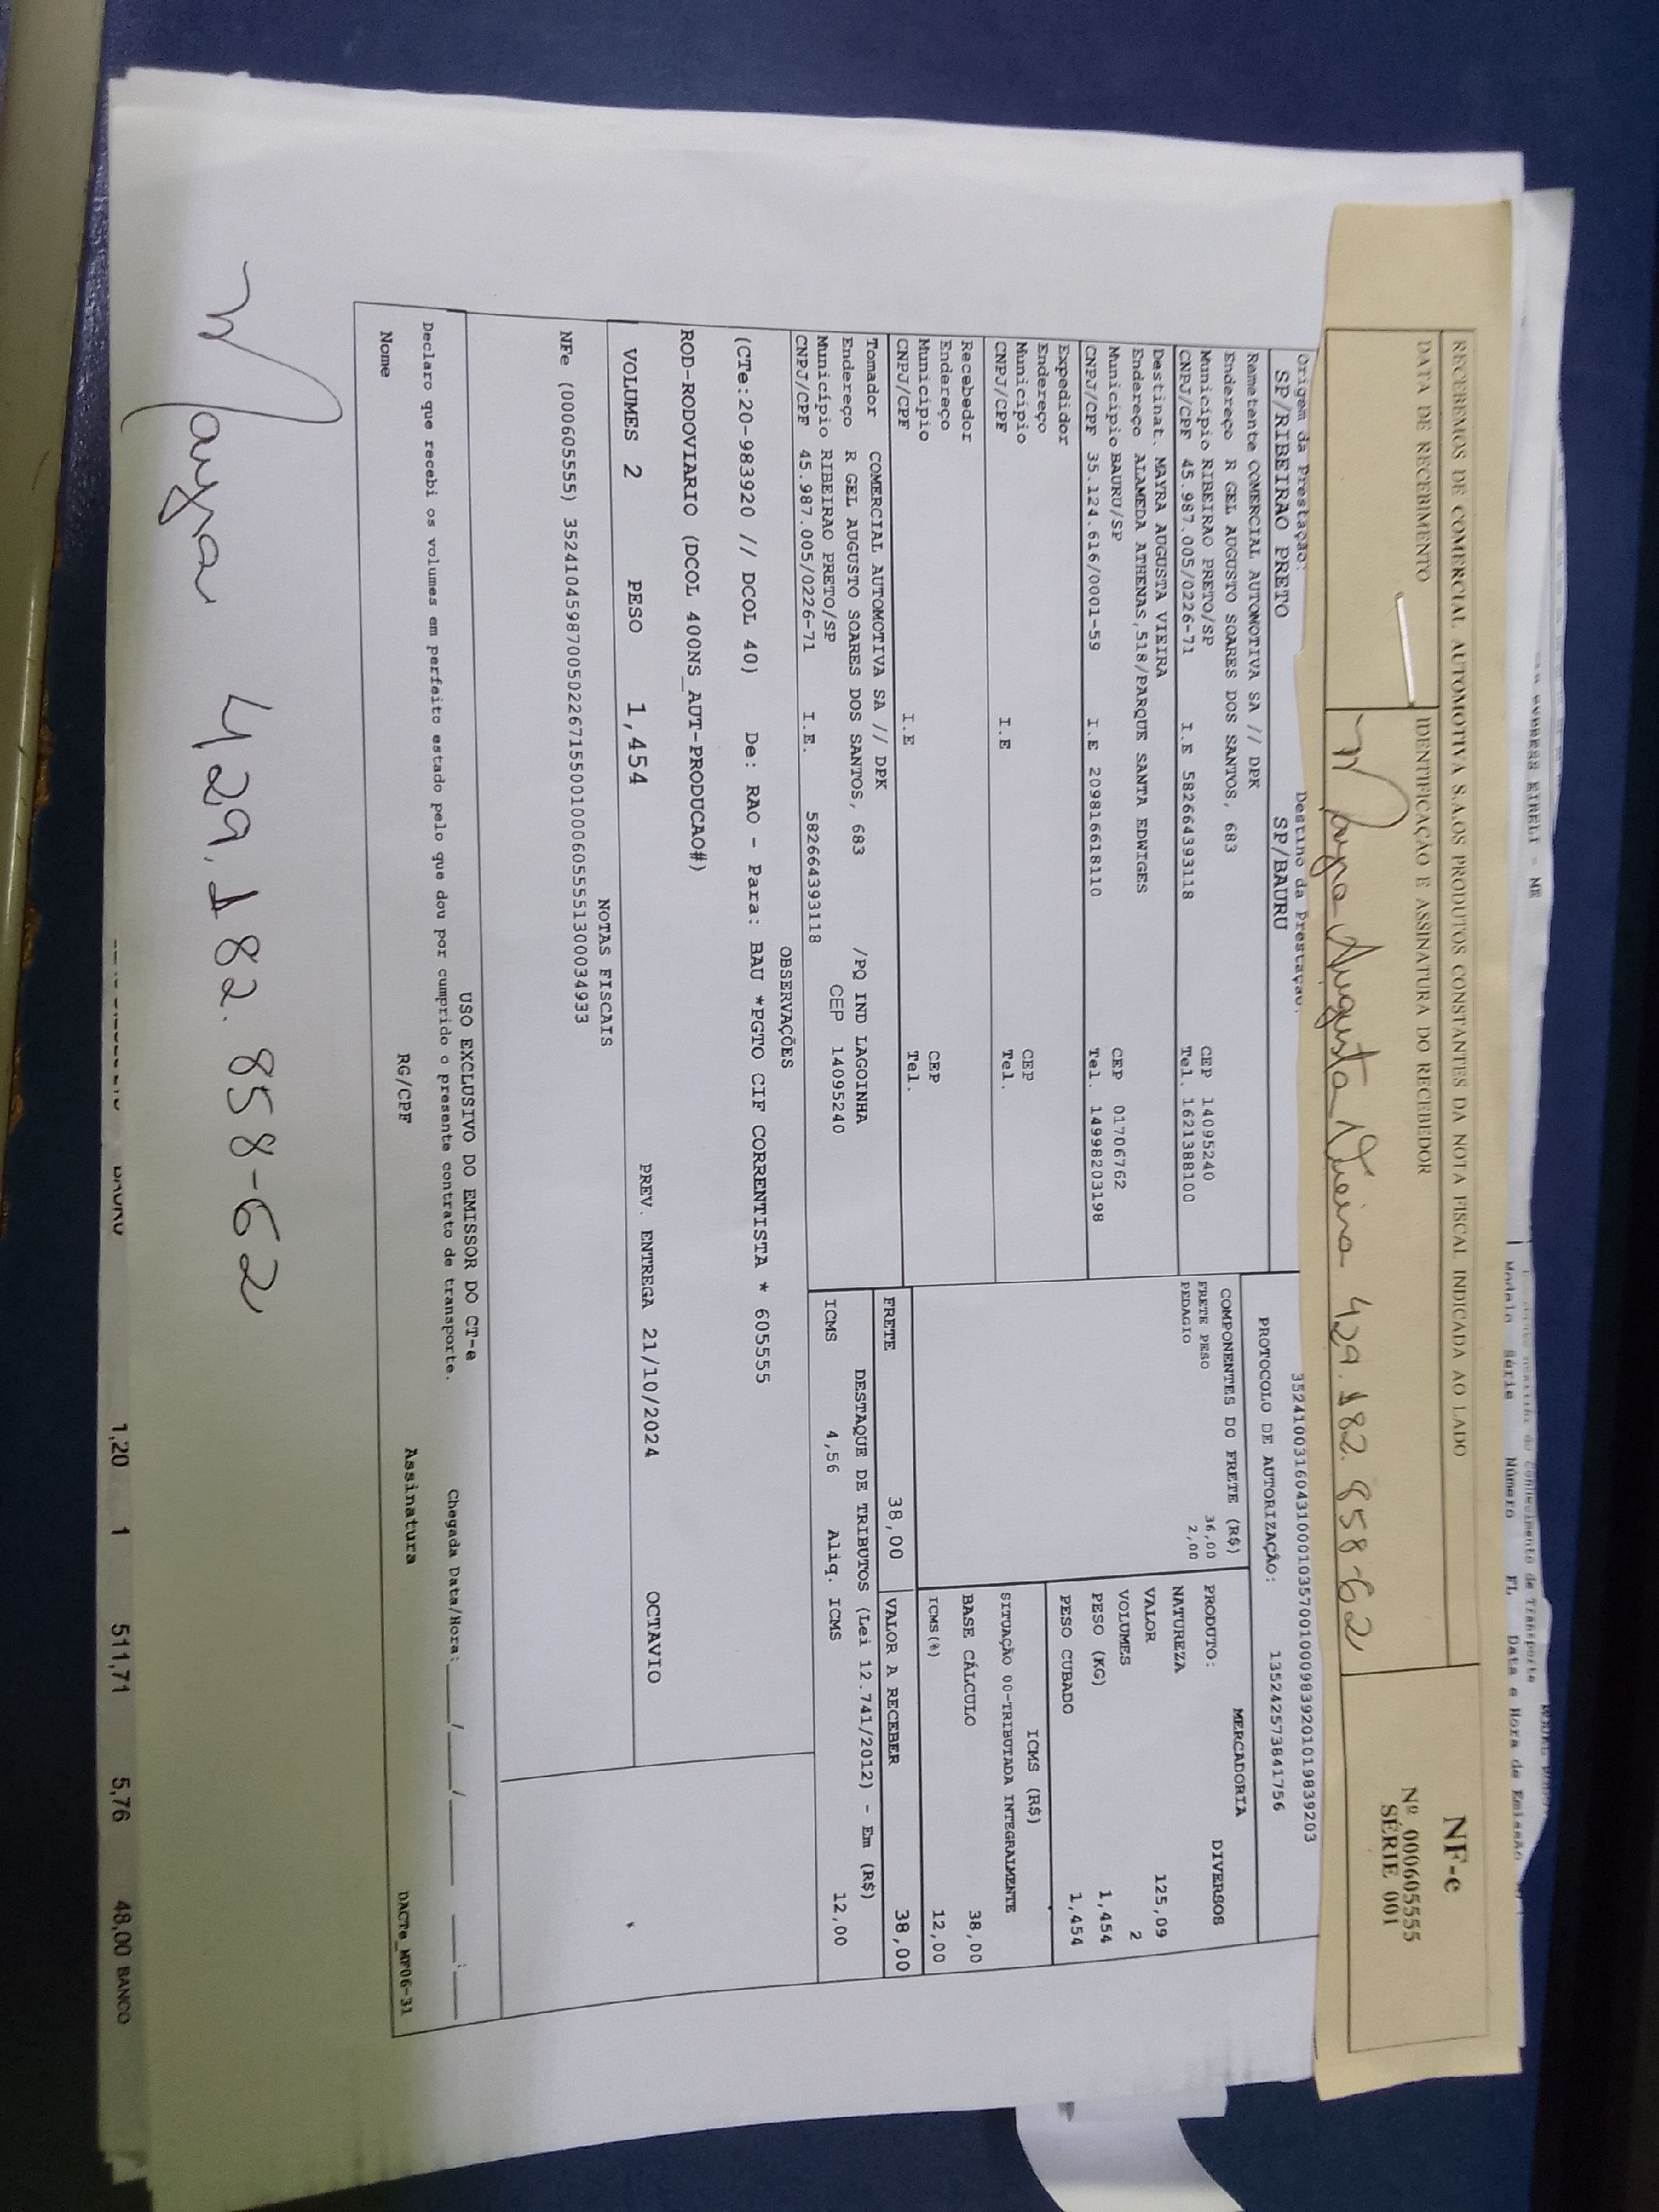 RECEBEMOS DE COMERCIAL AUTOMOTIVA S.A.OS PRODUTOS CONSTANTES DA NOTA FISCAL INDICADA AO LADO
DATA DE RECEBIMENTO
IDENTIFICAÇÃO E ASSINATURA DO RECEBEDOR
Mayra Augusta Vieira 429.182.858-62
NF-e
Nº 000605555
SÉRIE 001
Modelo Série Número FL Data e Hora de Emissão
Origem da Prestação:
SP/RIBEIRAO PRETO
Destino da Prestação:
SP/BAURU
35241003160431000103570010009839201019839203
PROTOCOLO DE AUTORIZAÇÃO: 135242573841756
Remetente COMERCIAL AUTOMOTIVA SA // DPK
Endereço R GEL AUGUSTO SOARES DOS SANTOS, 683
Município RIBEIRAO PRETO/SP CEP 14095240
CNPJ/CPF 45.987.005/0226-71 I.E 582664393118 Tel. 1621388100
Destinat. MAYRA AUGUSTA VIEIRA
Endereço ALAMEDA ATHENAS,518/PARQUE SANTA EDWIGES
Município BAURU/SP CEP 01706762
CNPJ/CPF 35.124.616/0001-59 I.E 209816618110 Tel. 14998203198
Expedidor
Endereço
Município CEP
CNPJ/CPF I.E Tel.
Recebedor
Endereço
Município CEP
CNPJ/CPF I.E Tel.
Tomador COMERCIAL AUTOMOTIVA SA // DPK
Endereço R GEL AUGUSTO SOARES DOS SANTOS, 683 /PQ IND LAGOINHA
Município RIBEIRAO PRETO/SP CEP 14095240
CNPJ/CPF 45.987.005/0226-71 I.E. 582664393118
COMPONENTES DO FRETE (R$)
FRETE PESO 36,00
PEDAGIO 2,00
MERCADORIA
PRODUTO: DIVERSOS
NATUREZA
VALOR 125,09
VOLUMES 2
PESO (KG) 1,454
PESO CUBADO 1,454
ICMS (R$)
SITUAÇÃO 00-TRIBUTADA INTEGRALMENTE
BASE CÁLCULO 38,00
ICMS(%) 12,00
FRETE 38,00 VALOR A RECEBER 38,00
DESTAQUE DE TRIBUTOS (Lei 12.741/2012) - Em (R$)
ICMS 4,56 Aliq. ICMS 12,00
OBSERVAÇÕES
(CTe:20-983920 // DCOL 40) De: RAO - Para: BAU *PGTO CIF CORRENTISTA * 605555
ROD-RODOVIARIO (DCOL 400NS_AUT-PRODUCAO#)
VOLUMES 2 PESO 1,454 PREV. ENTREGA 21/10/2024 OCTAVIO
NOTAS FISCAIS
NFe (000605555) 35241045987005022671550010006055551300034933
USO EXCLUSIVO DO EMISSOR DO CT-e
Declaro que recebi os volumes em perfeito estado pelo que dou por cumprido o presente contrato de transporte. Chegada Data/Hora:____/____/____ ___:___
Nome RG/CPF Assinatura DACTe_MF06-31
Mayra 429.182.858-62
BAURU 1,20 1 511,71 5,76 48,00 BANCO